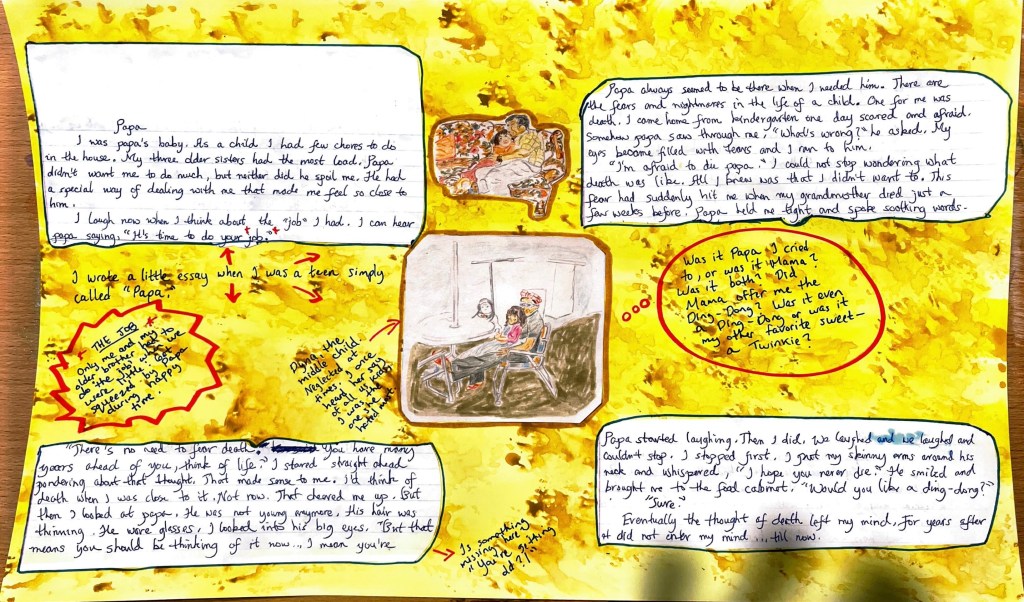 Papa
I was papa's baby. As a child I had few chores to do
in the house. My three older sisters had the most load. Papa
didn't want me to do much, but neither did he spoil me. He had
a special way of dealing with me that made me feel so close to
him.
I laugh now when I think about the "job" I had. I can hear
papa saying, "It's time to do your job."
I wrote a little essay when I was a teen simply
called "Papa."
THE JOB
Only me and my
older brother had to
do the "job" when we
were little. Got
squeezed by Papa
during happy
time.
"There's no need to fear death. You have many
years ahead of you, think of life." I stared straight ahead
pondering about that thought. That made sense to me. I'd think of
death when I was close to it. Not now. That cheered me up. But
then I looked at papa. He was not young anymore. His hair was
thinning. He wore glasses. I looked into his big eyes. "But that
means you should be thinking of it now... I mean you're
the
middle child
Neglected at
times. I once
heard her say
of all us kids
I was the
one she
hated most.
Is something
missing here
"You're sitting
old?!"
Papa always seemed to be there when I needed him. There are
the fears and nightmares in the life of a child. One for me was
death. I came home from kindergarten one day scared and afraid.
Somehow papa saw through me. "What's wrong?" he asked. My
eyes became filled with tears and I ran to him.
"I'm afraid to die papa." I could not stop wondering what
death was like. All I knew was that I didn't want to. This
fear had suddenly hit me when my grandmother died just a
few weeks before. Papa held me tight and spoke soothing words-
Was it Papa I cried
to, or was it Mama?
Was it both? Did
Mama offer me the
Ding-Dong? Was it even
a Ding-Dong or was it
my other favorite sweet—
a Twinkie?
Papa started laughing. Then I did. We laughed and we laughed and
couldn't stop. I stopped first. I put my skinny arms around his
neck and whispered, "I hope you never die." He smiled and
brought me to the food cabinet. "Would you like a ding-dong?"
"Sure."
Eventually the thought of death left my mind. For years after
it did not enter my mind... till now.